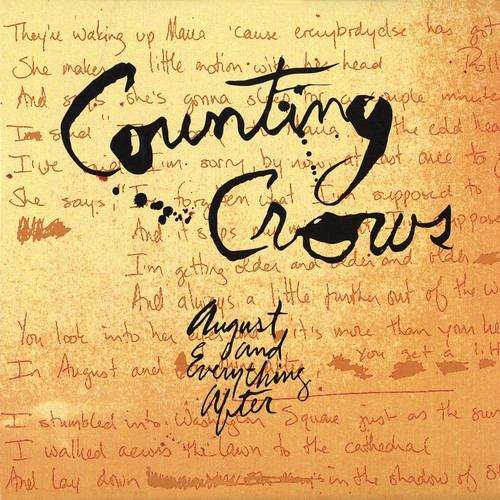 They're waking up Maria 'cause everybodyelse has got
She makes little motion with her head
And says she's gonna sleep for a couple minute
Counting
Crows
I've said I'm sorry by now at least once to
She says, I'm forgotten what I'm supposed to
And it slips my
I'm getting older and older and older
And always a little further out of the w
You look into her eyes and it's more than your he
In August and
You get a litt
August
and
Everything
After
I stumbled into Washington Square just as the sun
I walked across the lawn to the cathedral
And lay down in the shadow of S